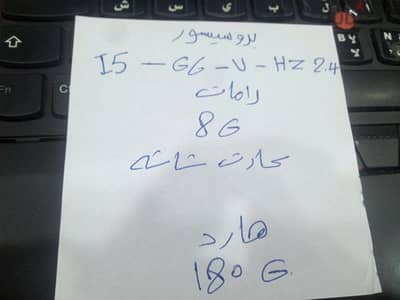 بروسيسور
I5 - G6 - V - HZ 2.4
رامات
8G
كارت شاشه
هارد
180 G